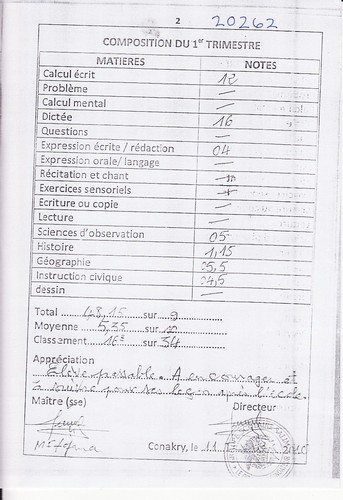 2 20262
COMPOSITION DU 1er TRIMESTRE
MATIERES NOTES
Calcul écrit 12
Problème —
Calcul mental —
Dictée 16
Questions —
Expression écrite / rédaction 04
Expression orale/ langage —
Récitation et chant —
Exercices sensoriels —
Ecriture ou copie —
Lecture —
Sciences d'observation 05
Histoire 1,15
Géographie 05,5
Instruction civique 04,5
dessin —
Total ......48,15......sur 9
Moyenne ......5,35......sur 10
Classement ......16e......sur 34
Appréciation
Elève passable. A encourager et
la suivre pour ses leçon après l'école.
Maître (sse) Directeur
Conakry, le 11